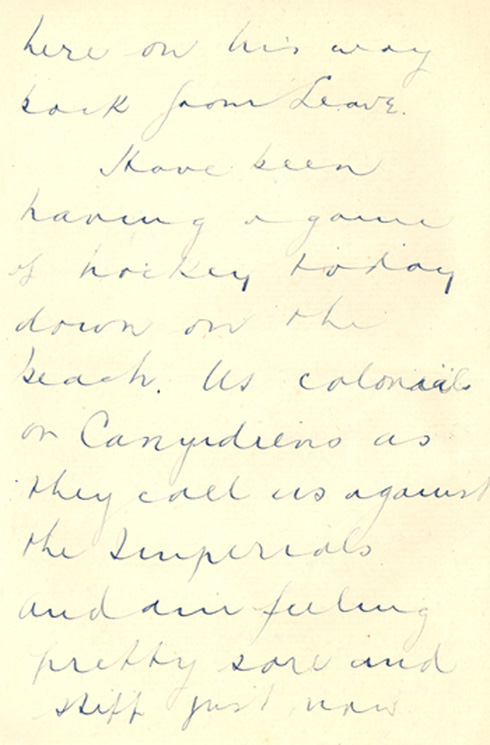 here on his way
back from Leave.
Have been
having a game
of hockey today
down on the
beach. Us colonials
or Canyidiens as
they call us against
the Imperials
and am feeling
pretty sore and
stiff just now